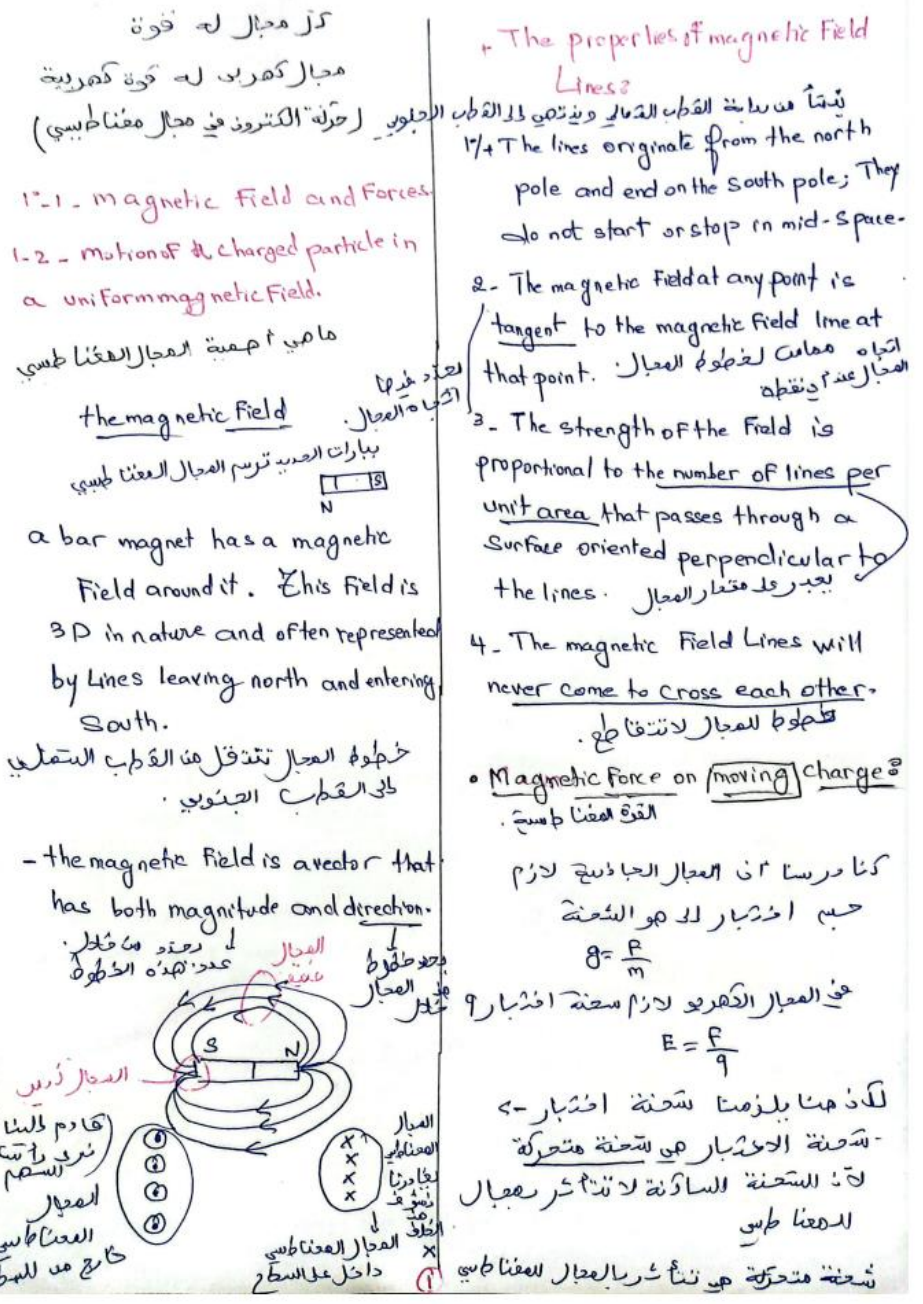 كل مجال له قوة
مجال كهربي له قوة كهربية
(حركة الكترون في مجال مغناطيسي)
1-1- magnetic Field and Forces.
1-2- motion of a charged particle in
a uniform magnetic Field.
ما هي أهمية المجال المغناطيسي
the magnetic Field
نحدد فيها
اتجاه المجال.
ببرادات الحديد ترسم المجال المغناطيسي
S
N
a bar magnet has a magnetic
Field around it. This Field is
3D in nature and often represented
by Lines leaving north and entering
South.
خطوط المجال تنتقل من القطب الشمالي
إلى القطب الجنوبي.
- the magnetic Field is a vector that
has both magnitude and direction.
عدد هذه الخطوط
المجال
S N
المجال
قادم إلينا
السهم
المجال
المغناطيسي
خارج من
المجال
المغناطيسي
x
x
x
x
x
المجال المغناطيسي
داخل على السطح
1
The properties of magnetic Field
Lines:
تبدأ من بداية القطب الشمالي وينتهي إلى القطب الجنوبي
1+ The lines originate from the north
pole and end on the south pole; They
do not start or stop in mid-space.
2- The magnetic Field at any point is
tangent to the magnetic field line at
that point. اتجاه مماس لخطوط المجال
المجال عند أي نقطة
3- The strength of the Field is
proportional to the number of lines per
unit area that passes through a
Surface oriented perpendicular to
the lines. يعبر على مقدار المجال
4- The magnetic Field Lines will
never come to cross each other.
خطوط المجال لا تتقاطع.
• Magnetic Force on moving charge:
القوة المغناطيسية.
كنا درسنا أن المجال الجاذبية لازم
جسم اختبار الي هو الشحنة
g= F/m
في المجال الكهربي لازم شحنة اختبار q
E = F/q
لكن هنا يلزمنا شحنة اختبار
- شحنة الاختبار هي شحنة متحركة
لأن الشحنة الساكنة لا تتأثر بمجال
المغناطيسي
شحنة متحركة هي تتأثر بالمجال المغناطيسي